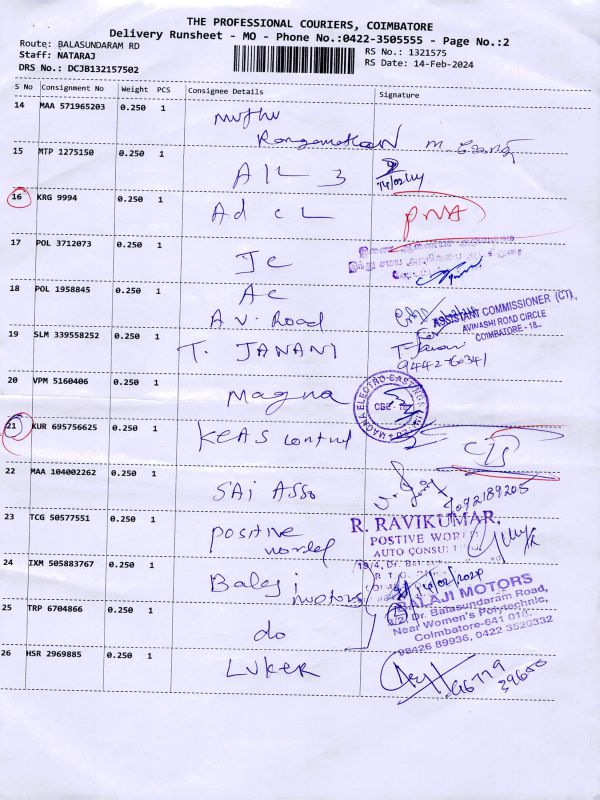 THE PROFESSIONAL COURIERS, COIMBATORE
Delivery Runsheet - MO - Phone No.:0422-3505555 - Page No.:2
Route: BALASUNDARAM RD
RS No.: 1321575
Staff: NATARAJ
RS Date: 14-Feb-2024
DRS No.: DCJB132157502
S No Consignment No Weight PCS Consignee Details Signature
14 MAA 571965203 0.250 1
muthu
15 MTP 1275150 0.250 1
A1L 3
14/02/24
16 KRG 9994 0.250 1
Ad CL
17 POL 3712073 0.250 1
JC
18 POL 1958845 0.250 1
AC
A.V. Road
ASSISTANT COMMISSIONER (CT),
AVINASHI ROAD CIRCLE
COIMBATORE - 18
19 SLM 339558252 0.250 1
T. JANANI
9442760341
20 VPM 5160406 0.250 1
Magna
MAGNA ELECTRO CASTINGS LIMITED
CBE
21 KUR 695756625 0.250 1
KEAS control
22 MAA 104002262 0.250 1
SAi Asso
9092189205
23 TCG 50577551 0.250 1
positive
R. RAVIKUMAR,
POSTIVE WORLD
AUTO CONSU
24 IXM 505883767 0.250 1
Balaji motors
BALAJI MOTORS
Dr. Balasundaram Road,
Near Women's Polytechnic,
Coimbatore-641 018.
98426 89936, 0422 3520332
25 TRP 6704866 0.250 1
do
26 HSR 2969885 0.250 1
LUKER